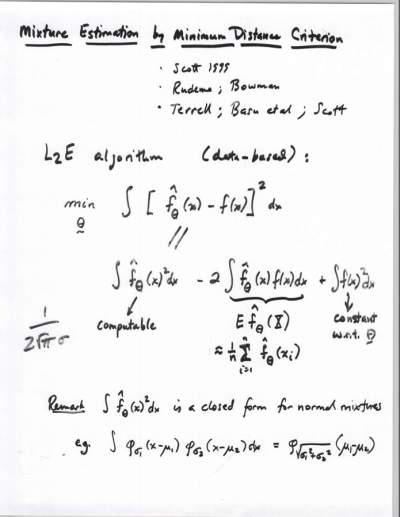 Mixture Estimation by Minimum Distance Criterion
· Scott 1995
· Rudemo ; Bowman
· Terrell ; Basu et al ; Scott
L2E algorithm (data-based) :
min θ ∫ [ f̂_θ(x) - f(x) ]² dx
//
∫ f̂_θ(x)² dx - 2 ∫ f̂_θ(x) f(x) dx + ∫ f(x)² dx
1 / 2√π σ
computable
E f̂_θ(X)
constant w.r.t. θ
≈ 1/n Σ_{i=1}^n f̂_θ(x_i)
Remark ∫ f̂_θ(x)² dx is a closed form for normal mixtures
e.g. ∫ φ_σ₁(x-μ₁) φ_σ₂(x-μ₂) dx = φ_√(σ₁²+σ₂²) (μ₁-μ₂)